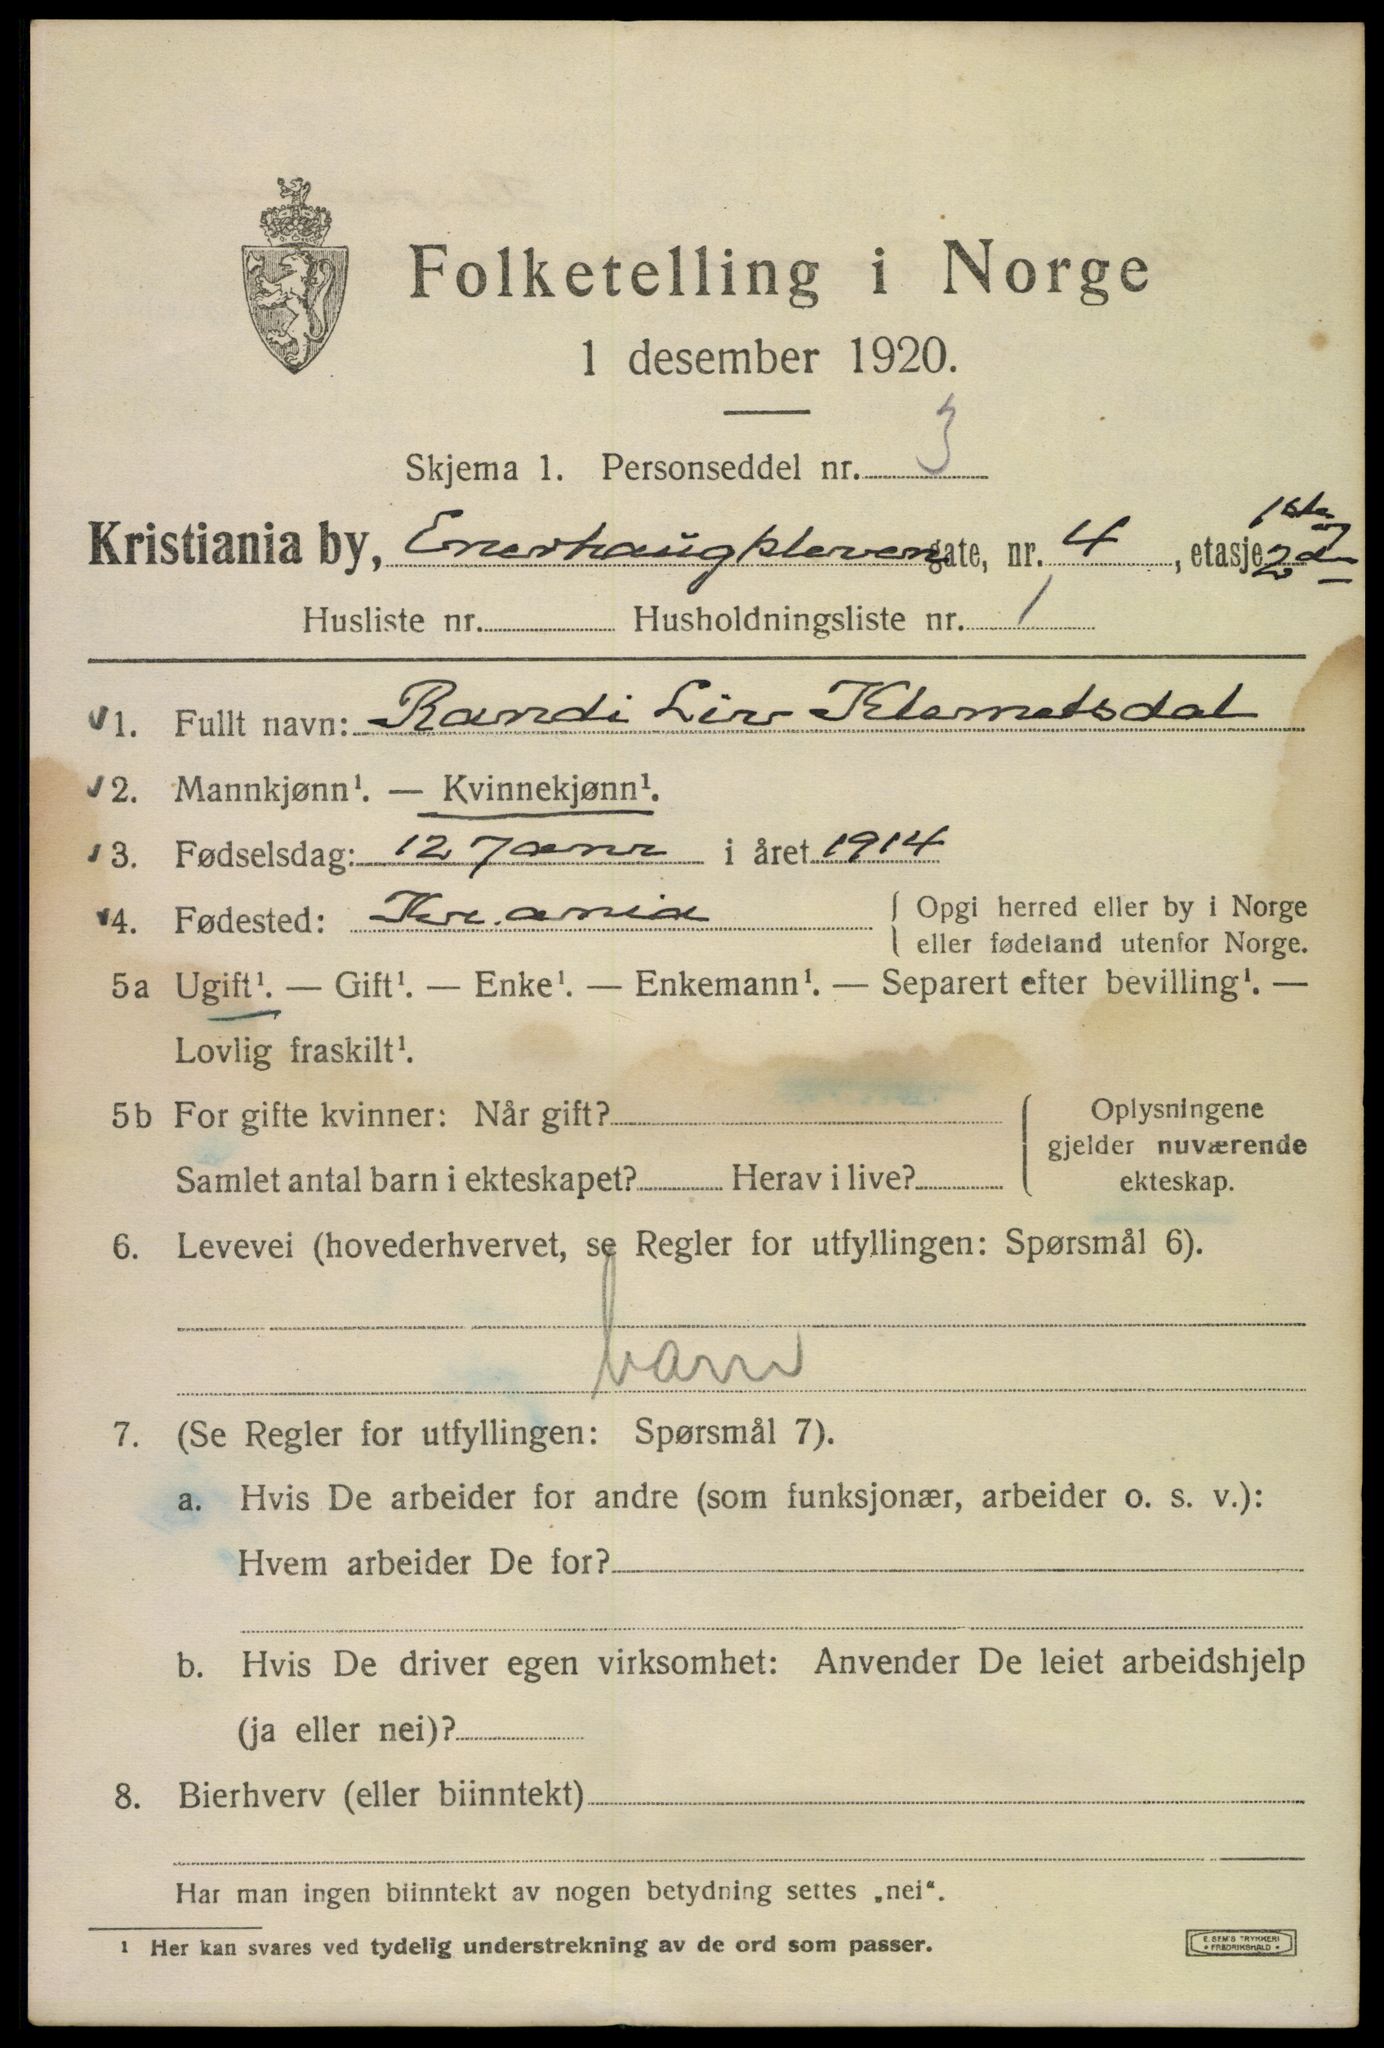 Folketelling i Norge
1 desember 1920.
Skjema 1. Personseddel nr. 3
Kristiania by, Enerhaugkleven gate, nr. 4, etasje 1ste og 2den
Husliste nr. Husholdningsliste nr. 1
1. Fullt navn: Randi Liv Klemetsdal
2. Mannkjønn¹. — Kvinnekjønn¹.
3. Fødselsdag: 12 Janr i året 1914
4. Fødested: Kr.ania { Opgi herred eller by i Norge
eller fødeland utenfor Norge.
5a Ugift¹. — Gift¹. — Enke¹. — Enkemann¹. — Separert efter bevilling¹. —
Lovlig fraskilt¹.
5b For gifte kvinner: Når gift? { Oplysningene
gjelder nuværende
Samlet antal barn i ekteskapet? Herav i live? ekteskap.
6. Levevei (hovederhvervet, se Regler for utfyllingen: Spørsmål 6).
barn
7. (Se Regler for utfyllingen: Spørsmål 7).
a. Hvis De arbeider for andre (som funksjonær, arbeider o. s. v.):
Hvem arbeider De for?
b. Hvis De driver egen virksomhet: Anvender De leiet arbeidshjelp
(ja eller nei)?
8. Bierhverv (eller biinntekt)
Har man ingen biinntekt av nogen betydning settes „nei“.
¹ Her kan svares ved tydelig understrekning av de ord som passer.
E. SEM'S TRYKKERI
• FREDRIKSHALD •